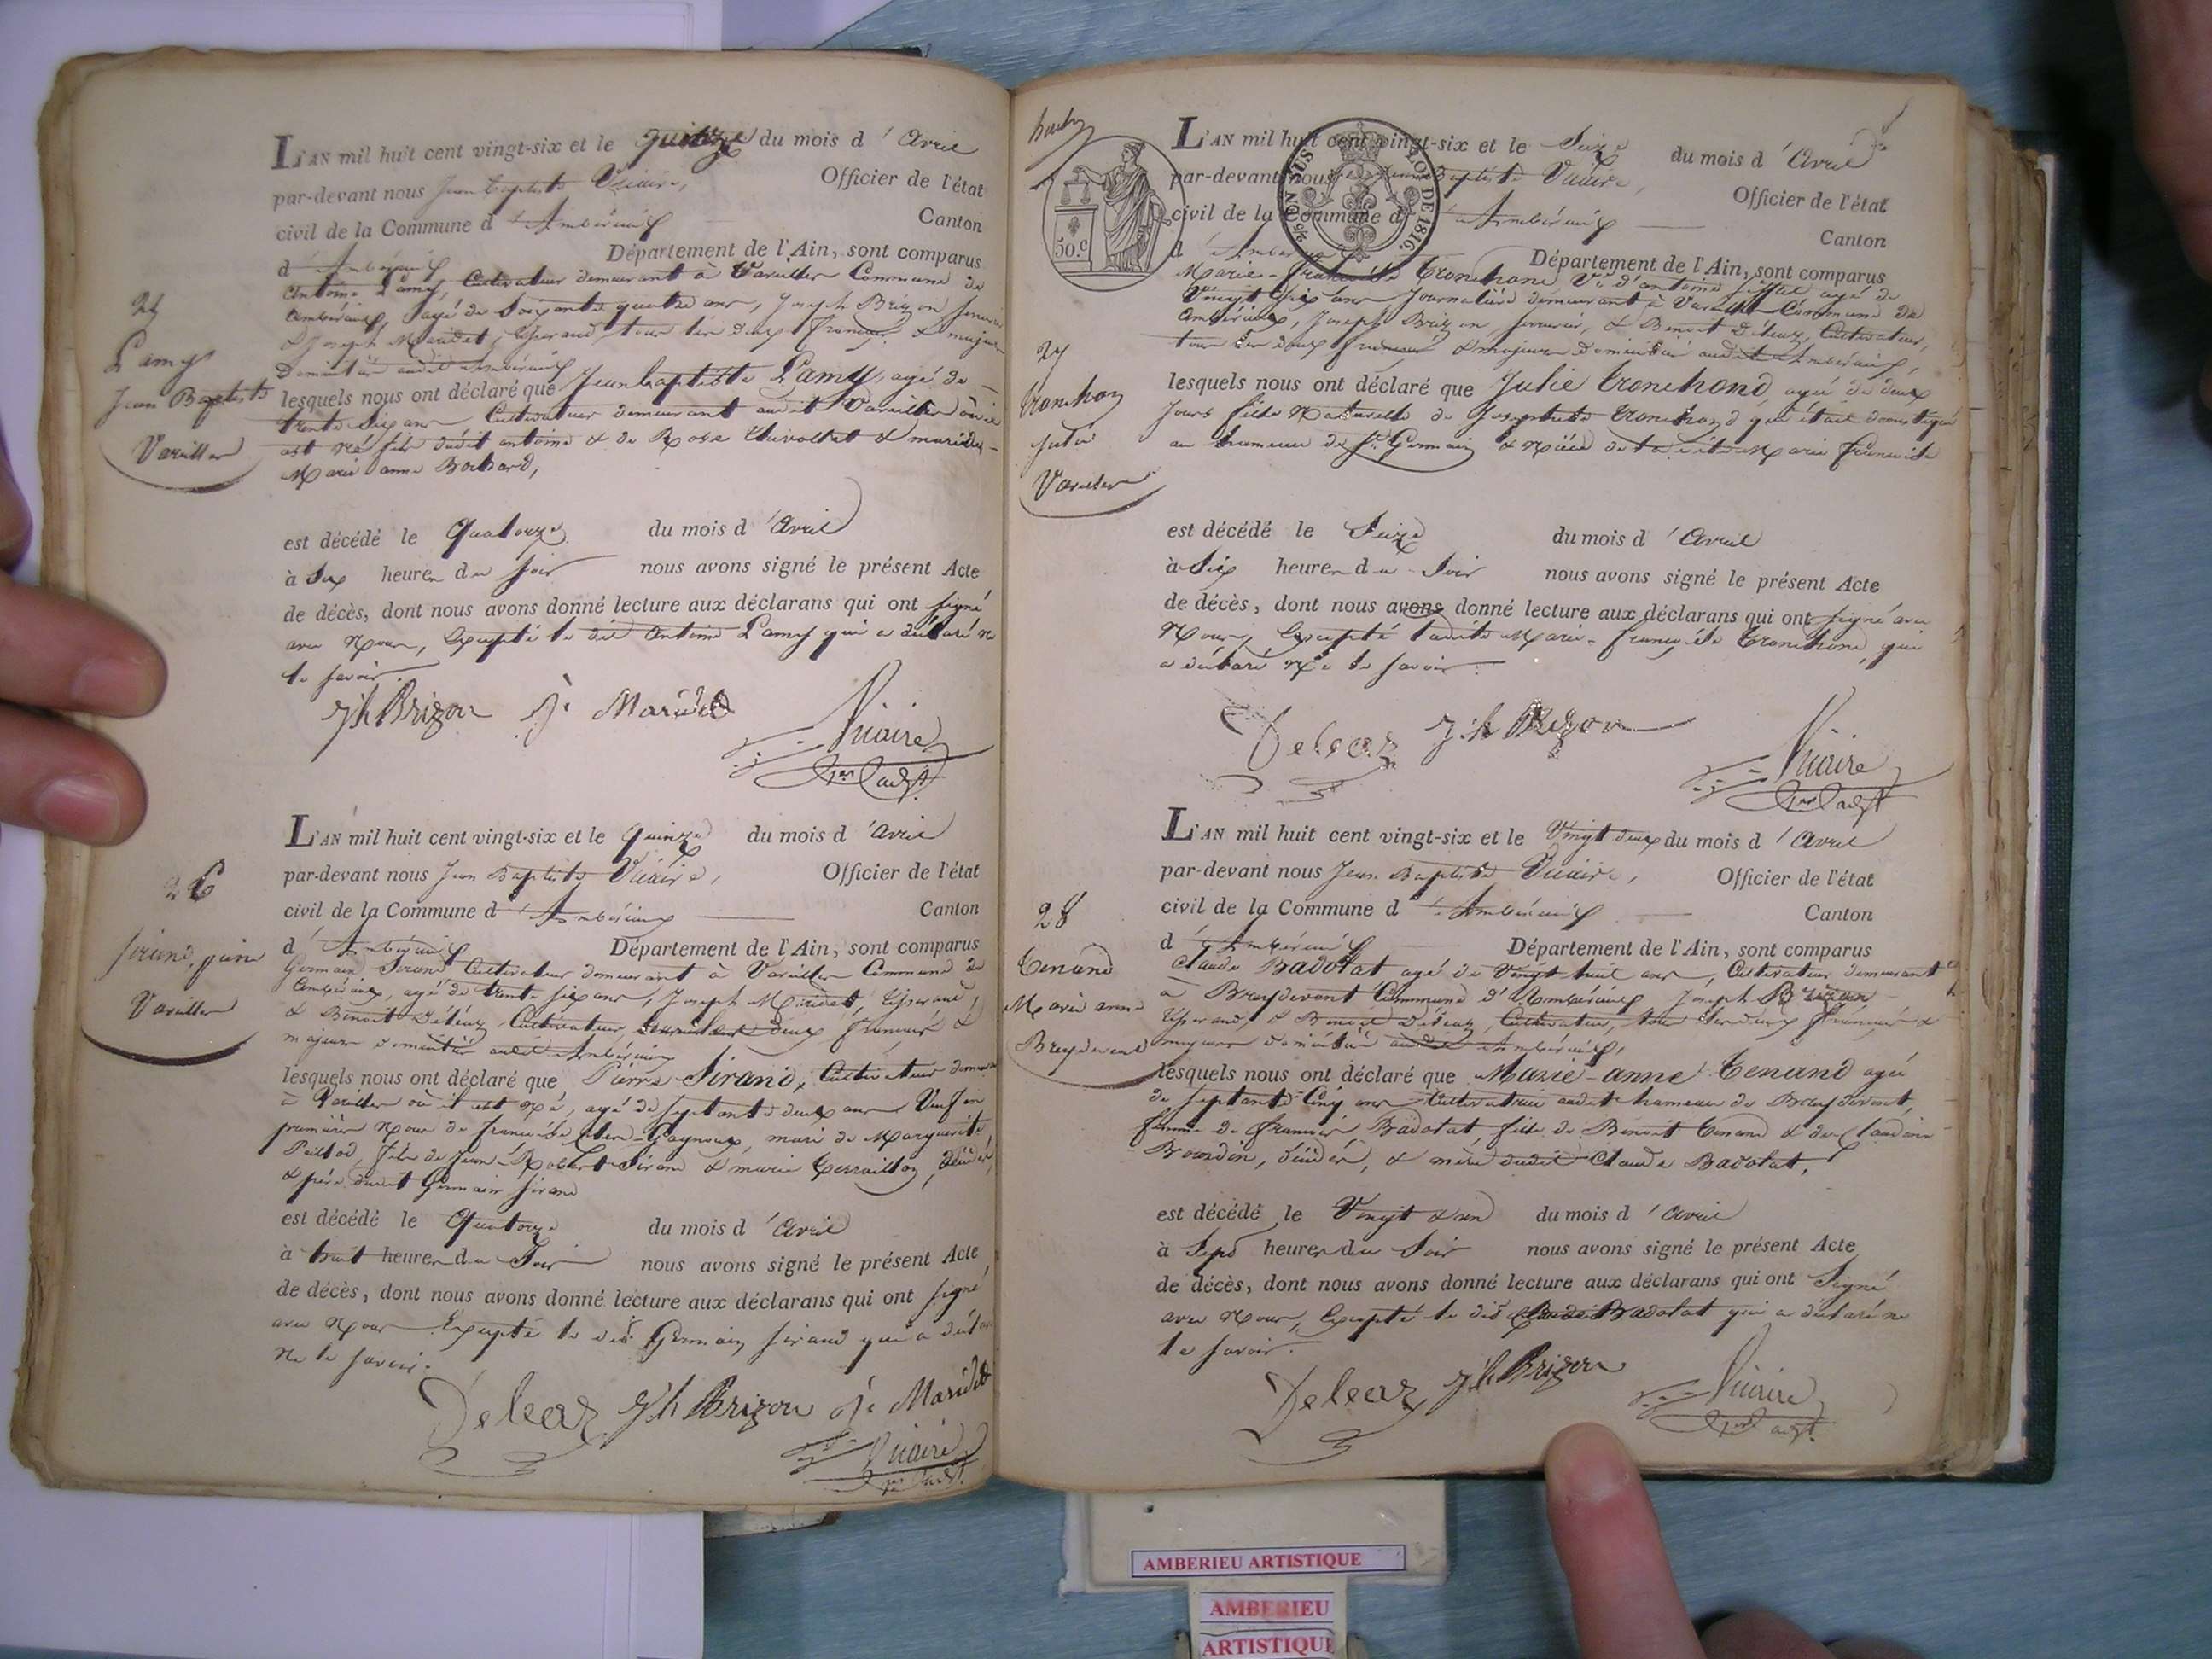 25
Lamy
Jean Baptiste
Vareilles
L'AN mil huit cent vingt-six et le quinze du mois d'Avril
par-devant nous Jean Baptiste Vicaire, Officier de l'état
civil de la Commune d'Ambérieux Canton
d'Ambérieux Département de l'Ain, sont comparus
Antoine Lamy, Cultivateur demeurant à Vareilles Commune de
Ambérieux, agé de Soixante quatre ans, Joseph Brizon
& Joseph Maridet, tisserand, tous les deux français & majeurs
Domiciliés audit Ambérieux
lesquels nous ont déclaré que Jean baptiste Lamy, agé de
trente Six ans Cultivateur demeurant audit Vareilles où il
est né fils dudit antoine & de Rose Chivollet & mari de
Marie anne Bochard,
est décédé le Quatorze du mois d'Avril
à Six heures du Soir nous avons signé le présent Acte
de décès, dont nous avons donné lecture aux déclarans qui ont signé
avec Nous, Excepté le dit Antoine Lamy qui a déclaré ne
le savoir.
Jh Brizon Jh Maridet
Vicaire
26
Sirand, pierre
Vareilles
L'AN mil huit cent vingt-six et le quinze du mois d'avril
par-devant nous Jean Baptiste Vicaire, Officier de l'état
civil de la Commune d'Ambérieux Canton
d'Ambérieux Département de l'Ain, sont comparus
Germain Sirand Cultivateur demeurant à Vareilles Commune de
Ambérieux, agé de trente six ans, Joseph Maridet, tisserand,
& Benoit Déléaz, Cultivateur, tous les deux français &
majeurs domiciliés audit Ambérieux
lesquels nous ont déclaré que Pierre Sirand, Cultivateur demeurant
à Vareilles où il est né, agé de septante deux ans Veuf en
premières Noces de françoise mari de Marguerite
fils de Jean-Robert Sirand & marie Terraillon, décédés,
& père dudit Germain Sirand
est décédé le Quatorze du mois d'Avril
à huit heures du Soir nous avons signé le présent Acte
de décès, dont nous avons donné lecture aux déclarans qui ont signé
avec Nous Excepté le dit Germain Sirand qui a déclaré
Ne le savoir.
Deleaz Jh Brizon Jh Maridet
Vicaire
50.c
DE 1816.
27
tronchon
Julie
Vareilles
L'AN mil huit cent vingt-six et le Seize du mois d'Avril
par-devant nous Jean Baptiste Vicaire, Officier de l'état
civil de la Commune d'Ambérieux Canton
d'Ambérieux Département de l'Ain, sont comparus
Marie-françoise tronchond Ve d'antoine agé de
Vingt Six ans Journalière demeurant à Vareilles Commune de
Ambérieux, Joseph Brizon & Benoit Déléaz, Cultivateur,
tous les deux français & majeurs Domiciliés audit Ambérieux,
lesquels nous ont déclaré que Julie tronchond, agée de deux
Jours fille Naturelle de Josephte tronchond qui était domestique
au hameau de St Germain & Nièce de ladite Marie françoise
est décédé le Seize du mois d'Avril
à Six heures du Soir nous avons signé le présent Acte
de décès, dont nous avons donné lecture aux déclarans qui ont signé avec
Nous, Excepté ladite Marie-françoise Tronchond, qui
a déclaré Ne le savoir.
Deleaz Jh Brizon
Vicaire
28
Tenand
Marie anne
Breydevent
L'AN mil huit cent vingt-six et le Vingt deux du mois d'Avril
par-devant nous Jean Baptiste Vicaire, Officier de l'état
civil de la Commune d'Ambérieux Canton
d'Ambérieux Département de l'Ain, sont comparus
Claude Badolat agé de Vingt huit ans, Cultivateur demeurant
à Breydevent Commune d'Ambérieux Joseph Brizon
tisserand, & Benoit Déléaz, Cultivateur, tous les deux français &
majeurs domiciliés audit Ambérieux,
lesquels nous ont déclaré que Marie-anne Tenand agée
de septante Cinq ans Cultivatrice audit hameau de Breydevent,
femme de françois Badolat, fille de Benoit Tenand & de Claudine
Bourdin, décédés, & mère dudit Claude Badolat,
est décédé le Vingt & un du mois d'Avril
à Sept heures du Soir nous avons signé le présent Acte
de décès, dont nous avons donné lecture aux déclarans qui ont Signé
avec Nous, Excepté le dit Claude Badolat qui a déclaré ne
le savoir.
Deleaz Jh Brizon
Vicaire
AMBERIEU ARTISTIQUE
AMBERIEU
ARTISTIQUE